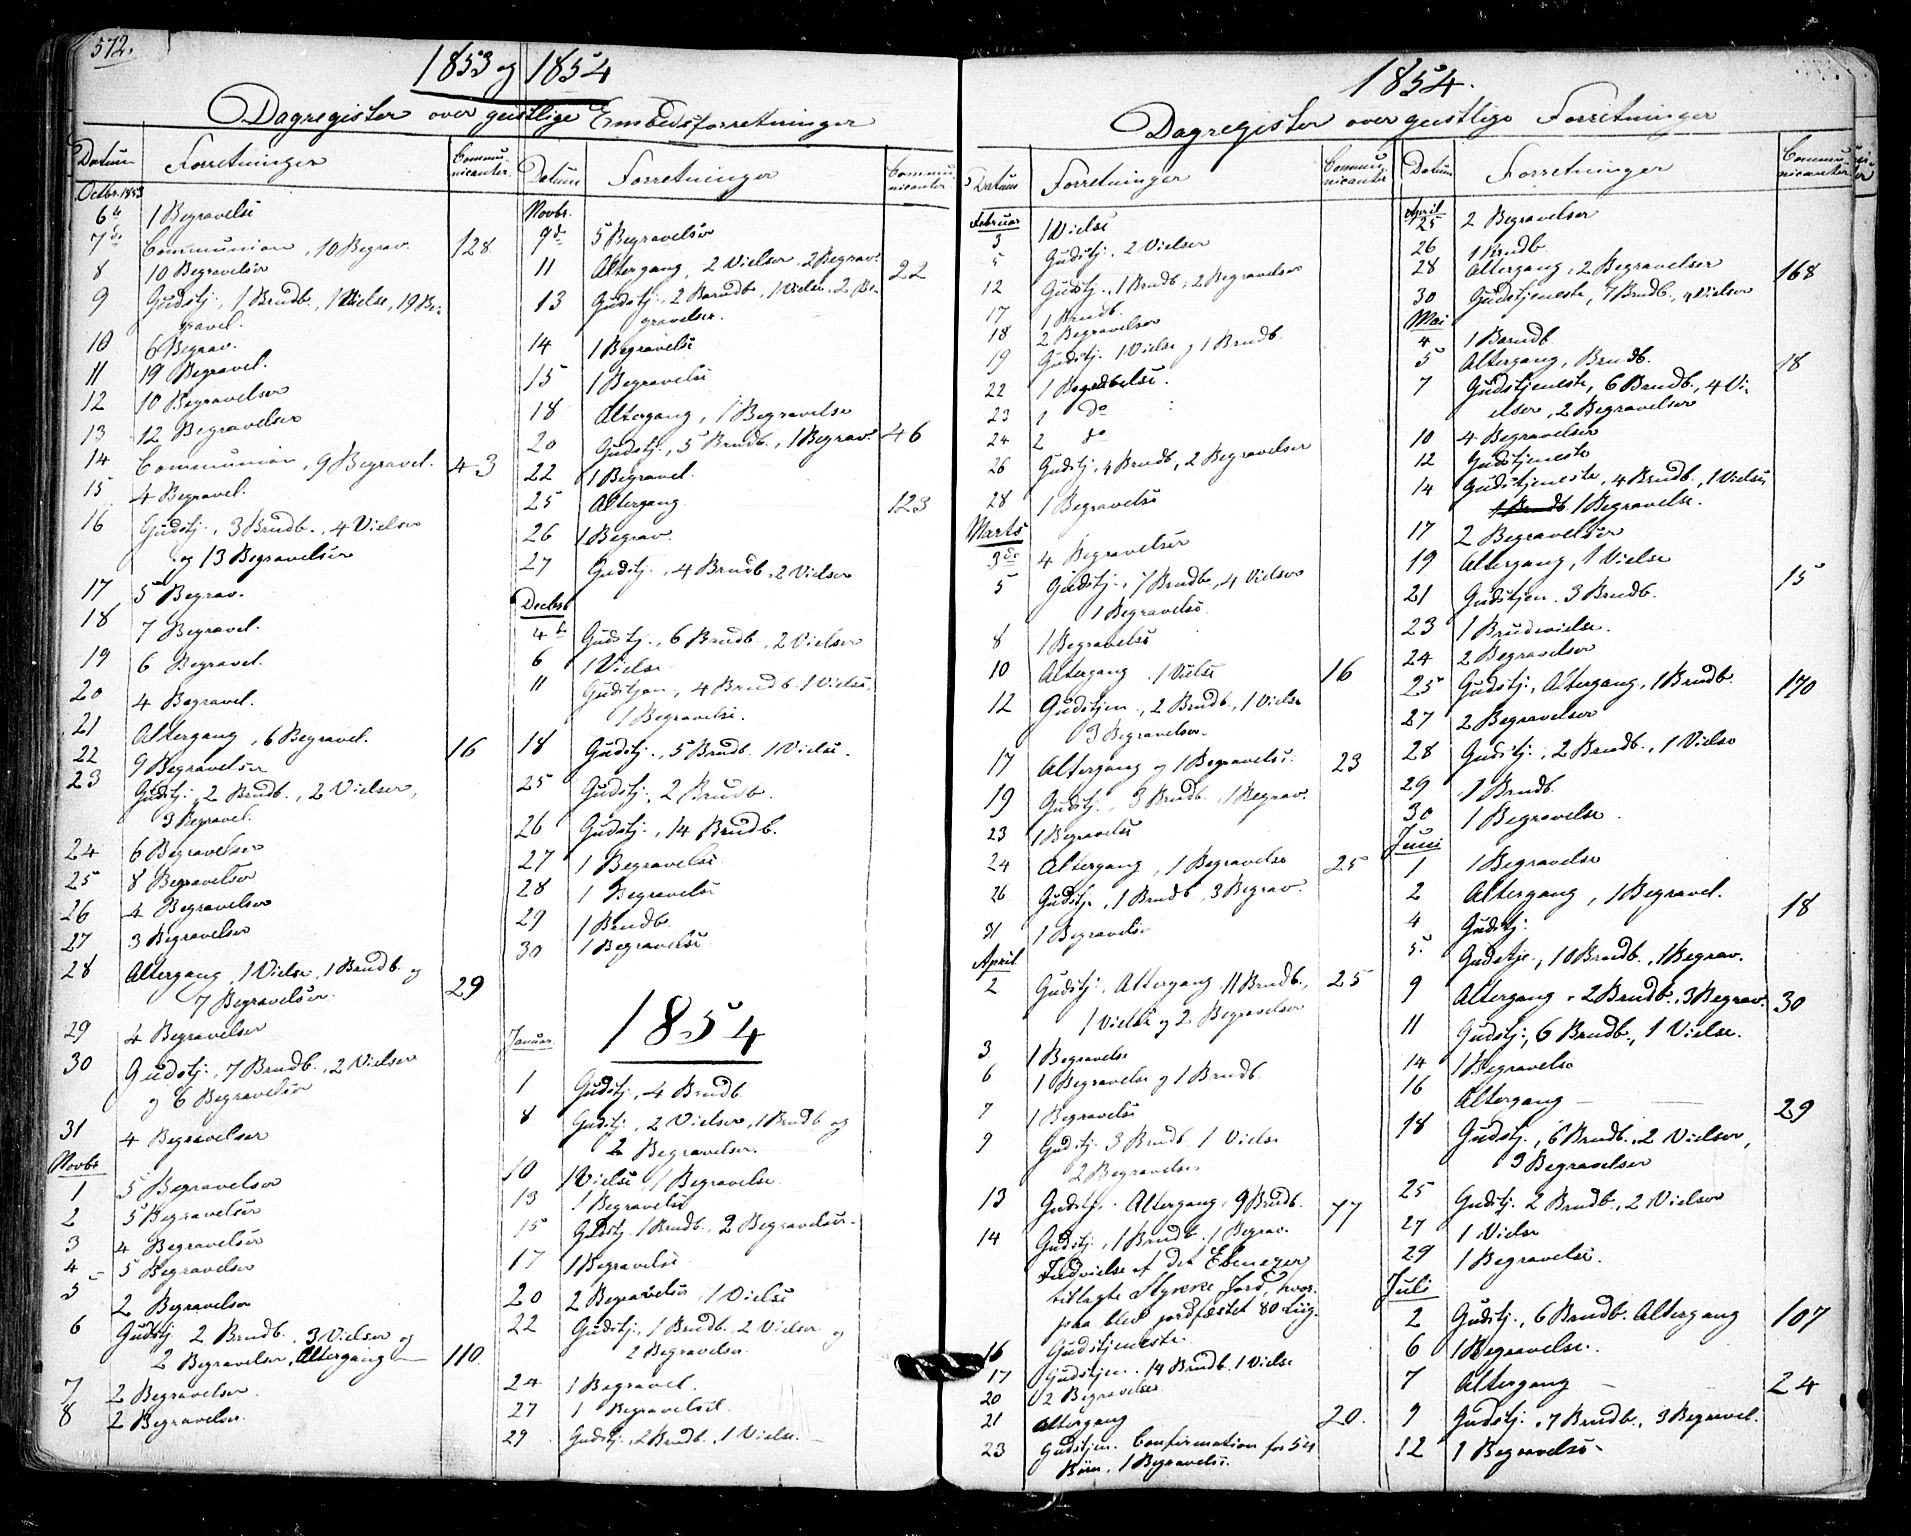 572.
1853 og 1854
Dagregister over geistlige Embedsforretninger
Datum Forretninger Communicanter
Octbr. 1853
6te 1 Begravelse
7de Communion, 10 Begrav. 128
8 10 Begravelser
9 Gudstj., 1 Brudb., 1 Vielse, 19 Be-
gravel.
10 6 Begrav.
11 19 Begravel.
12 10 Begravelser
13 12 Begravelser
14 Communion, 9 Begravel. 43
15 4 Begravel.
16 Gudstj., 3 Brudb., 4 Vielser
og 13 Begravelser
17 5 Begrav.
18 7 Begravel.
19 6 Begravel.
20 4 Begravel.
21 Altergang, 6 Begravel. 16
22 9 Begravelser
23 Gudstj., 2 Brudb., 2 Vielser,
3 Begravel.
24 6 Begravelser
25 8 Begravelser
26 4 Begravelser
27 3 Begravelser
28 Altergang, 1 Vielse, 1 Brudb. og
7 Begravelser. 29
29 4 Begravelser
30 Gudstj., 7 Brudb., 2 Vielser
og 6 Begravelser
31 4 Begravelser
Novbr
1 5 Begravelser
2 5 Begravelser
3 4 Begravelser
4 5 Begravelser
5 2 Begravelser
6 Gudstj 2 Brudb., 3 Vielser og
2 Begravelser, Altergang — 110.
7 2 Begravelser.
8 2 Begravelser.
Datum Forretninger Communicanter
Novbr.
9de 5 Begravelser
11 Altergang, 2 Vielser, 2 Begrav. 22
13 Gudstj., 2 Barndb., 1 Vielse, 2 Be-
gravelser.
14 1 Begravelse
15 1 Begravelse
18 Altergang, 1 Begravelse
20 Gudstj., 5 Brudb., 1 Begrav. 46
22 1 Begravel.
25 Altergang 123
26 1 Begrav.
27 Gudstj., 4 Brudb., 2 Vielser
Decbr
4de Gudstj., 6 Brudb., 2 Vielser
6 1 Vielse
11 Gudstjen., 4 Brudb. 1 Vielse,
1 Begravelse.
18 Gudstj., 5 Brudb. 1 Vielse.
25 Gudstj., 2 Brudb.
26 Gudstj., 14 Brudb.
27 1 Begravelse
28 1 Begravelse
29 1 Brudb.
30 1 Begravelse
1854
Januar.
1 Gudstj., 4 Brudb.
8 Gudstj., 2 Vielser, 1 Brudb og
2 Begravelser.
10 1 Vielse, 1 Begravelse.
13 1 Begravelse
15 Gudstj. 1 Brudb., 2 Begravelser.
17 1 Begravelse
20 2 Begravelser, 1 Vielse
22 Gudstj., 1 Brudb., 2 Vielser og
2 Begravelser.
24 1 Begravel.
27 1 Begravelse.
29 Gudstj., 2 Brudb., 1 Vielse.
1854.
Dagregister over geistlige Forretninger
Datum Forretninger Communicanter
Februar
3 1 Vielse
5 Gudstj., 2 Vielser
12 Gudstj., 1 Brudb., 2 Begravelser
17 1 Brudb.
18 2 Begravelser
19 Gudstj. 1 Vielse og 1 Brudb.
22 1 Begravelse.
23 1 do
24 2 do
26 Gudstj., 4 Brudb., 2 Begravelser
28 1 Begravelse
Marts
3de 4 Begravelser
5 Gudstj., 7 Brudb., 4 Vielser
1 Begravelse.
8 1 Begravelse
10 Altergang, 1 Vielse 16
12 Gudstjen., 2 Brudb., 1 Vielse
3 Begravelser.
17 Altergang og 1 Begravelse. 23
19 Gudstj., 3 Brudb., 1 Begrav.
23 1 Begravelse
24 Altergang, 1 Begravelse 25
26 Gudstje, 1 Brudb, 3 Begrav.
31 1 Begravelse
April
2 Gudstj. Altergang, 11 Brudb., 25
1 Vielse og 2 Begravelser
3 1 Begravelse
6 1 Begravelse og 1 Brudb.
7 1 Begravelse
9 Gudstj. 3 Brudb. 1 Vielse
2 Begravelser
13 Gudstj. Altergang, 9 Brudb. 77
14 Gudstj., 1 Brudb., 1 Begrav.
Indvielse af det Ebenezer
tillagte Stykke Jord, hvor-
paa blev jordfæstet 80 Liig.
16 Gudstjeneste.
17 Gudstjen. 14 Brudb. 1 Vielse
20 2 Begravelser
21 Altergang 20.
23 Gudstjen. Confirmation for 54
Børn, 1 Begravelse.
Datum Forretninger Communicanter
April
25 2 Begravelser
26 1 Brudb
28 Altergang, 2 Begravelser 168
30 Gudstjeneste, 7 Brudb., 4 Vielser
Mai
4 1 Barndb
5 Altergang, Brudb. 18
7 Gudstjeneste, 6 Brudb., 4 Vi-
elser, 2 Begravelser
10 4 Begravelser
12 Gudstjeneste
14 Gudstjeneste, 4 Brudb., 1 Vielse
1 Brudb. 1 Begravelse.
17 2 Begravelser
19 Altergang, 1 Vielse 15
21 Gudstjen. 3 Brudb.
23 1 Brudevielse.
24 2 Begravelser
25 Gudstj., Altergang, 1 Brudb. 170
27 2 Begravelser
28 Gudstj., 2 Brudb., 1 Vielse
29 1 Brudb.
30 1 Begravelse.
Juni
1 1 Begravelse
2 Altergang, 1 Begravel. 18
4 Gudstj.
5 Gudstje., 10 Brudb., 1 Begrav.
9 Altergang, 2 Brudb., 3 Begrav. 30
11 Gudstj., 6 Brudb., 1 Vielse.
14 1 Begravelse
16 Altergang — 29
18 Gudstj., 6 Brudb., 2 Vielser,
3 Begravelser
25 Gudstj. 2 Brudb., 2 Vielser
27 1 Vielse
29 1 Begravelse.
Juli
2 Gudstj., 6 Brudb. Altergang 107
6 1 Begravelse.
7 Altergang — 24
9 Gudstj., 7 Brudb., 3 Begravel.
12 1 Begravelse.